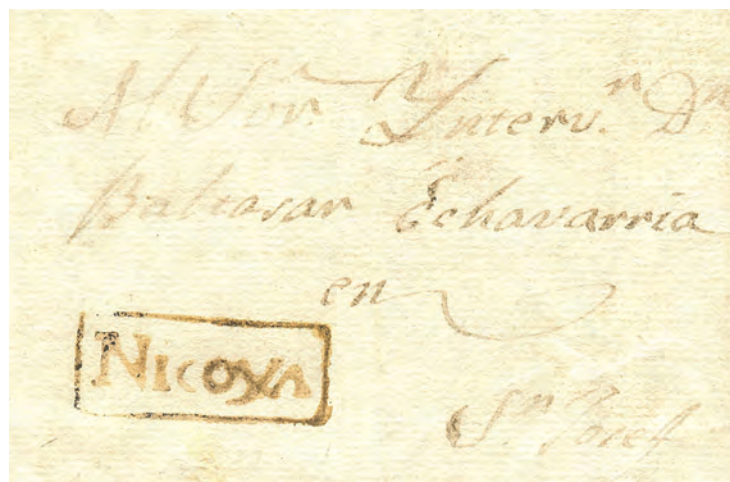 Al Sor. Ynterv.r Dn
Baltasar Echavarria
en
NICOYA
Sn. Josef